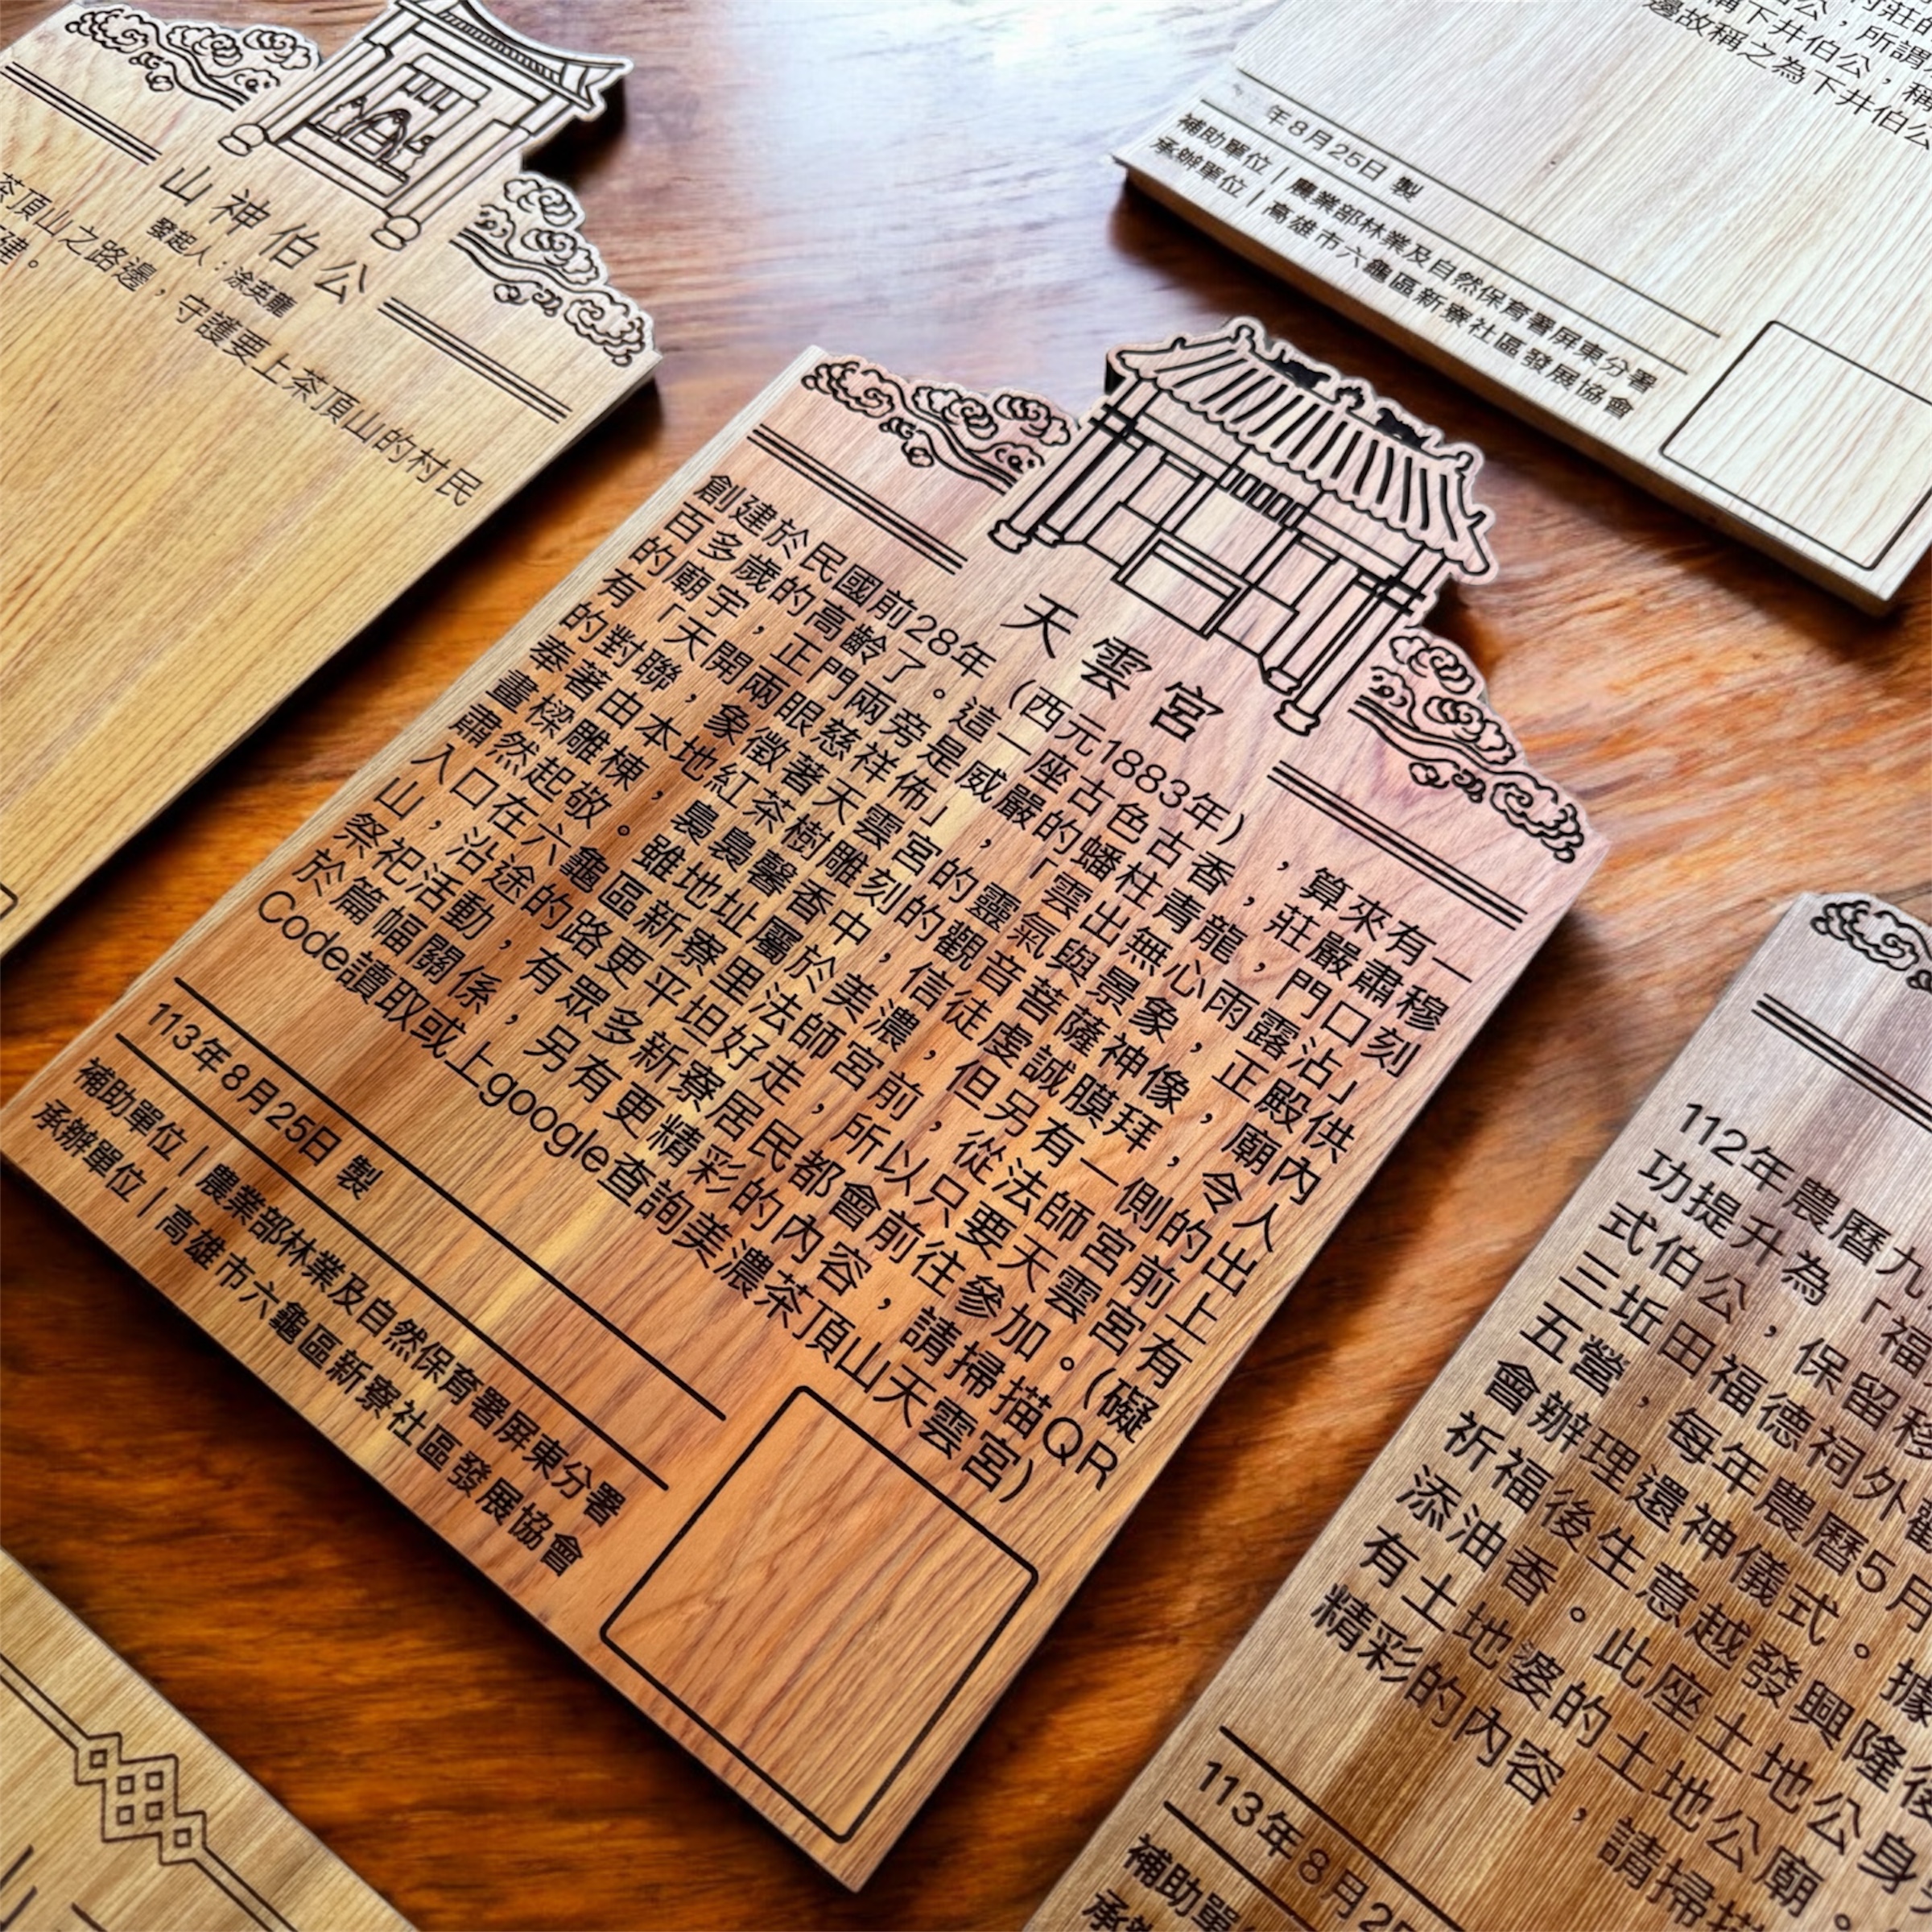 山神伯公
發起人：涂英龍
茶頂山之路邊，守護要上茶頂山的村民
建。
村莊的
公，所謂
稱下井伯公，稱
邊故稱之為下井伯公
年8月25日 製
補助單位｜農業部林業及自然保育署屏東分署
承辦單位｜高雄市六龜區新寮社區發展協會
天雲宮
創建於民國前28年（西元1883年），算來有一
百多歲的高齡了。這一座古色古香，莊嚴肅穆
的廟宇，正門兩旁是威嚴的蟠柱青龍，門口刻
有「天開兩眼慈祥佈」，「雲出無心雨露沾」
的對聯，象徵著天雲宮的靈氣與景象，正殿供
奉著由本地紅茶樹雕刻的觀音菩薩神像，廟內
畫樑雕棟，裊裊馨香中，信徒虔誠膜拜，令人
肅然起敬。雖地址屬於美濃，但另有一側的出
入口在六龜區新寮里法師宮前，從法師宮前上
山，沿途的路更平坦好走，所以只要天雲宮有
祭祀活動，有眾多新寮居民都會前往參加。(礙
於篇幅關係，另有更精彩的內容，請掃描QR
Code讀取或上google查詢美濃茶頂山天雲宮)
113年8月25日 製
補助單位｜農業部林業及自然保育署屏東分署
承辦單位｜高雄市六龜區新寮社區發展協會
112年農曆九
功提升為「福
式伯公，保留移
三坵田福德祠外觀
五營，每年農曆5月
會辦理還神儀式。據
祈福後生意越發興隆後
添油香。此座土地公身
有土地婆的土地公廟。
精彩的內容，請掃
113年8月25
補助單
承辦